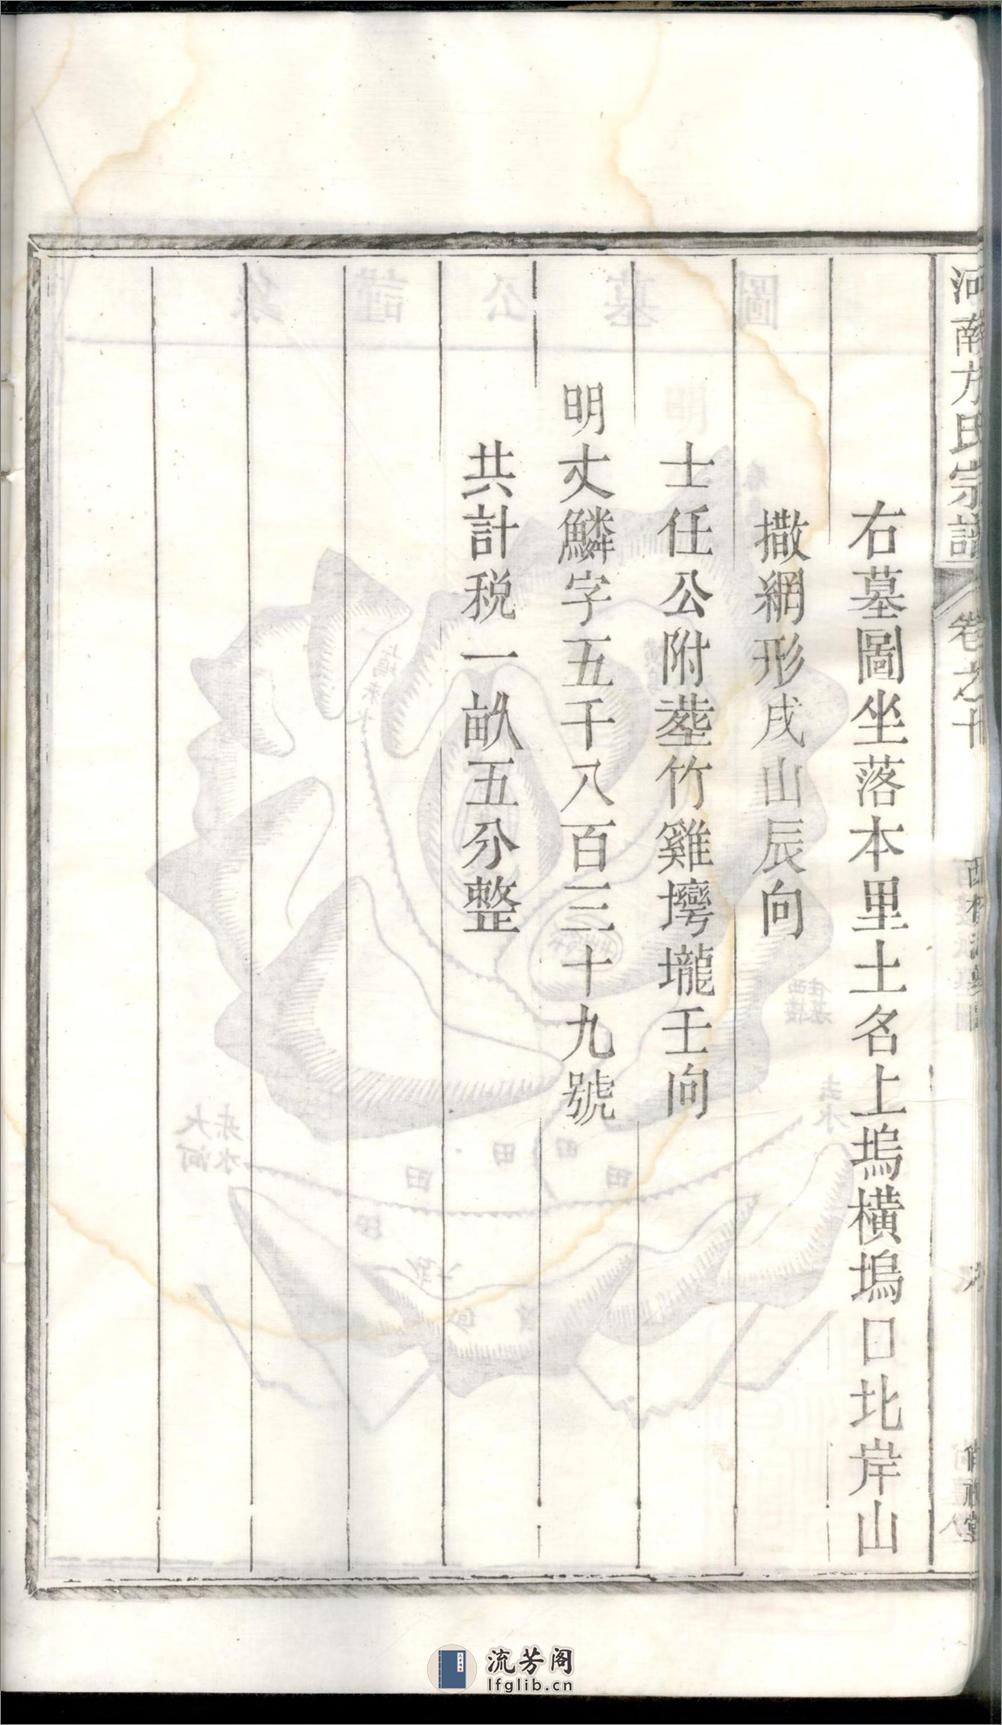 河南方氏宗譜
卷之
右墓圖坐落本里土名上塢橫塢口北岸山
撒網形戌山辰向
士任公附塟竹雞塆壠壬向
明丈鱗字五千八百三十九號
共計稅一畝五分整
流芳阁
lfglib.cn